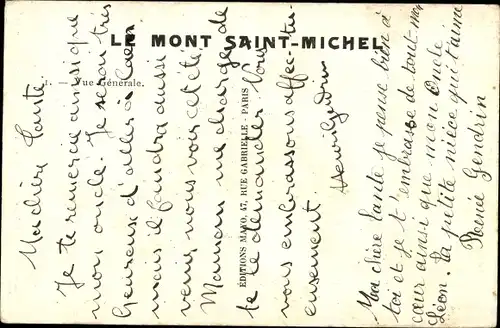 LE MONT SAINT-MICHEL
1. — Vue Générale.
EDITIONS MAYO, 47, RUE GABRIELLE - PARIS
Ma chère Tante
Je te remercie ainsi que
mon oncle. Je serais très
heureuse d'aller à Caen
mais il faudra aussi
venir nous voir cet été
Maman me charge de
te le demander Nous
vous embrassons affectu-
eusement.
Henri Gendrin
Ma chère tante je pense bien à
toi et je t'embrasse de tout mon
cœur ainsi que mon Oncle
Léon. Ta petite nièce qui t'aime
Renée Gendrin